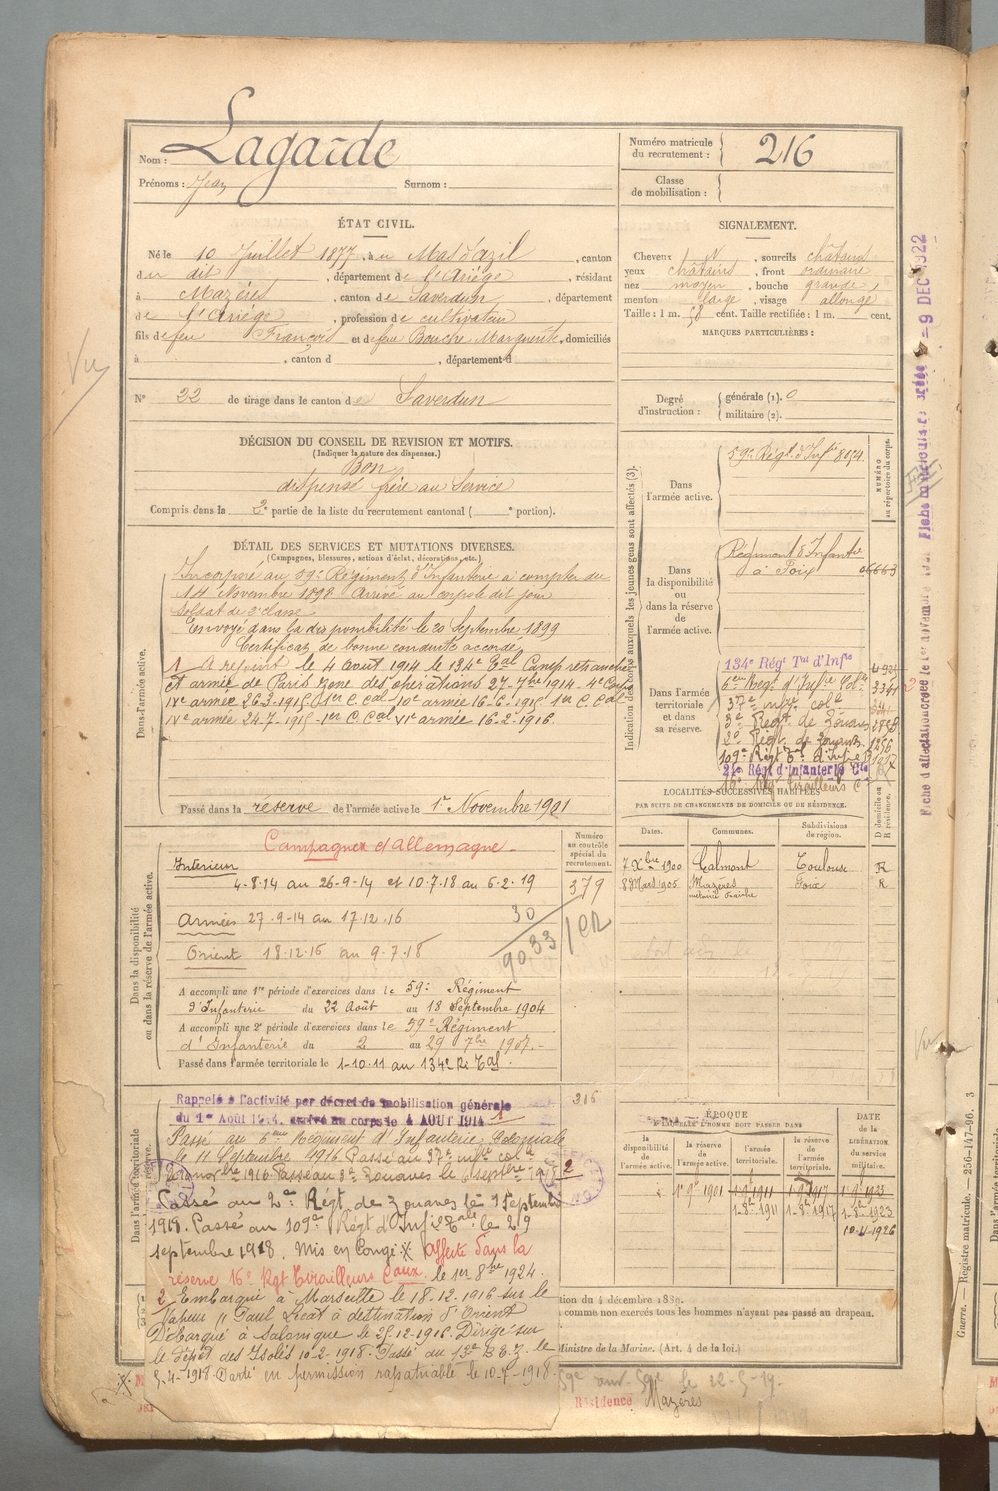 Nom : Lagarde
Prénoms : Jean Surnom :
Numéro matricule du recrutement : 216
Classe de mobilisation :
ÉTAT CIVIL.
Né le 10 Juillet 1877, à u Mas d'azil, canton
du dit, département de l'Ariège, résidant
à Mazères, canton de Saverdun, département
de l'Ariège, profession de cultivateur
fils de feu François et de feu Bouche Marguerite, domiciliés
à , canton d , département d
N° 22 de tirage dans le canton de Saverdun
SIGNALEMENT.
Cheveux N, sourcils châtains
yeux châtains, front ordinaire
nez moyen, bouche grande,
menton large, visage allongé
Taille : 1 m. 58 cent. Taille rectifiée : 1 m. cent.
MARQUES PARTICULIÈRES :
Degré d'instruction : générale (1). 0
militaire (2).
DÉCISION DU CONSEIL DE REVISION ET MOTIFS.
(Indiquer la nature des dispenses.)
Bon
dispensé frère au Service
Compris dans la 2e partie de la liste du recrutement cantonal ( e portion).
DÉTAIL DES SERVICES ET MUTATIONS DIVERSES.
(Campagnes, blessures, actions d'éclat, décorations, etc.)
Dans l'armée active.
Incorporé au 59e Régiment d'Infanterie à compter du
14 Novembre 1898 Arrivé au corps le dit jour
soldat de 2e classe
Envoyé dans la disponibilité le 20 Septembre 1899
Certificat de bonne conduite accordé
1 A rejoint le 4 Août 1914 le 134e Tal Camp retranché
et armée de Paris Zone des opérations 27-7bre 1914 - 4e Corps
IVe armée 26-3-1915 1er C. Cal - 10e armée 16-6-1915 1er C. Cal
IVe armée 24-7-1915 - 1er C. Cal VIe armée 16-2-1916
Passé dans la réserve de l'armée active le 1er Novembre 1901
Indication des corps auxquels les jeunes gens sont affectés (3).
NUMÉRO au répertoire du corps.
Dans l'armée active.
59e Régt d'Infie 8054
Dans la disponibilité ou dans la réserve de l'armée active.
Régiment d'Infanterie
à Foix 06663
Dans l'armée territoriale et dans sa réserve.
134e Régt Tal d'Infie
6e Régt d'Infie Cole
37e Infie cole
3e Régt de Zouaves
2e Régt de Zouaves
109e Régt Tal d'Infie
21e Régt d'Infanterie Cle
16e Régt Tirailleurs
LOCALITÉS SUCCESSIVES HABITÉES
PAR SUITE DE CHANGEMENTS DE DOMICILE OU DE RÉSIDENCE.
Dates. Communes. Subdivisions de région. D domicile ou R résidence.
7 Xbre 1900 Calmont Toulouse R
8 Mars 1905 Mazères Foix R
Dans la disponibilité ou dans la réserve de l'armée active.
Numéro au contrôle spécial du recrutement.
Campagnes d'Allemagne.
Intérieur
4-8-14 au 26-9-14 et 10.7.18 au 6.2.19
379
Armées 27-9-14 au 17.12.16
30
Orient 18.12.16 au 9.7.18
9033
A accompli une 1re période d'exercices dans le 59e Régiment
d'Infanterie du 22 Août au 18 Septembre 1904
A accompli une 2e période d'exercices dans le 59e Régiment
d'Infanterie du 2 au 29 7bre 1907.-
Passé dans l'armée territoriale le 1-10.11 au 134e Ri Tal.
Dans l'armée territoriale
Rappelé à l'activité par décret de mobilisation générale
du 1er Août 1914, arrivé au corps le 4 AOUT 1914 1
Passé au 6e Régiment d'Infanterie Coloniale
le 11 Septembre 1916 Passé au 37e Infie cole
novbre 1916 Passé au 3e Zouaves le 6 septbre
2
Passé au 2e Régt de Zouaves le 1 Septembre
1918. Passé au 109e Régt d'Infie Tale le 29
septembre 1918. Mis en Congé affecté dans la
réserve 16e Rgt Tirailleurs Caux. le 1er 8bre 1924.
2 Embarqué à Marseille le 18.12.1916 sur le
Vapeur "Paul Lecat à destination d'Orient
Débarqué à Salonique le 25.12.1916. Dirigé sur
le dépôt des Isolés 10-2-1918. Passé au le
5.4-1918. Parti en permission rapatriable le 10-7-1918.
216
ÉPOQUE
À LAQUELLE L'HOMME DOIT PASSER DANS
la disponibilité de l'armée active. la réserve de l'armée active. l'armée territoriale. la réserve de l'armée territoriale. DATE de la LIBÉRATION du service militaire.
1-9-1901 1-9-1911 1-9-1917 1-9-1923
1-8-1911 1-8-1917 1-8-1923
10-11-1926
tion du 4 décembre 1830.
comme non exercés tous les hommes n'ayant pas passé au drapeau.
Ministre de la Marine. (Art. 4 de la loi.)
Résidence Mazères
Fiche d'affectation créée le 1er novembre
Fiche matricule créée 9 DEC 1922
Guerre. — Registre matricule. — 256-147-96. 3
Vu
Vu